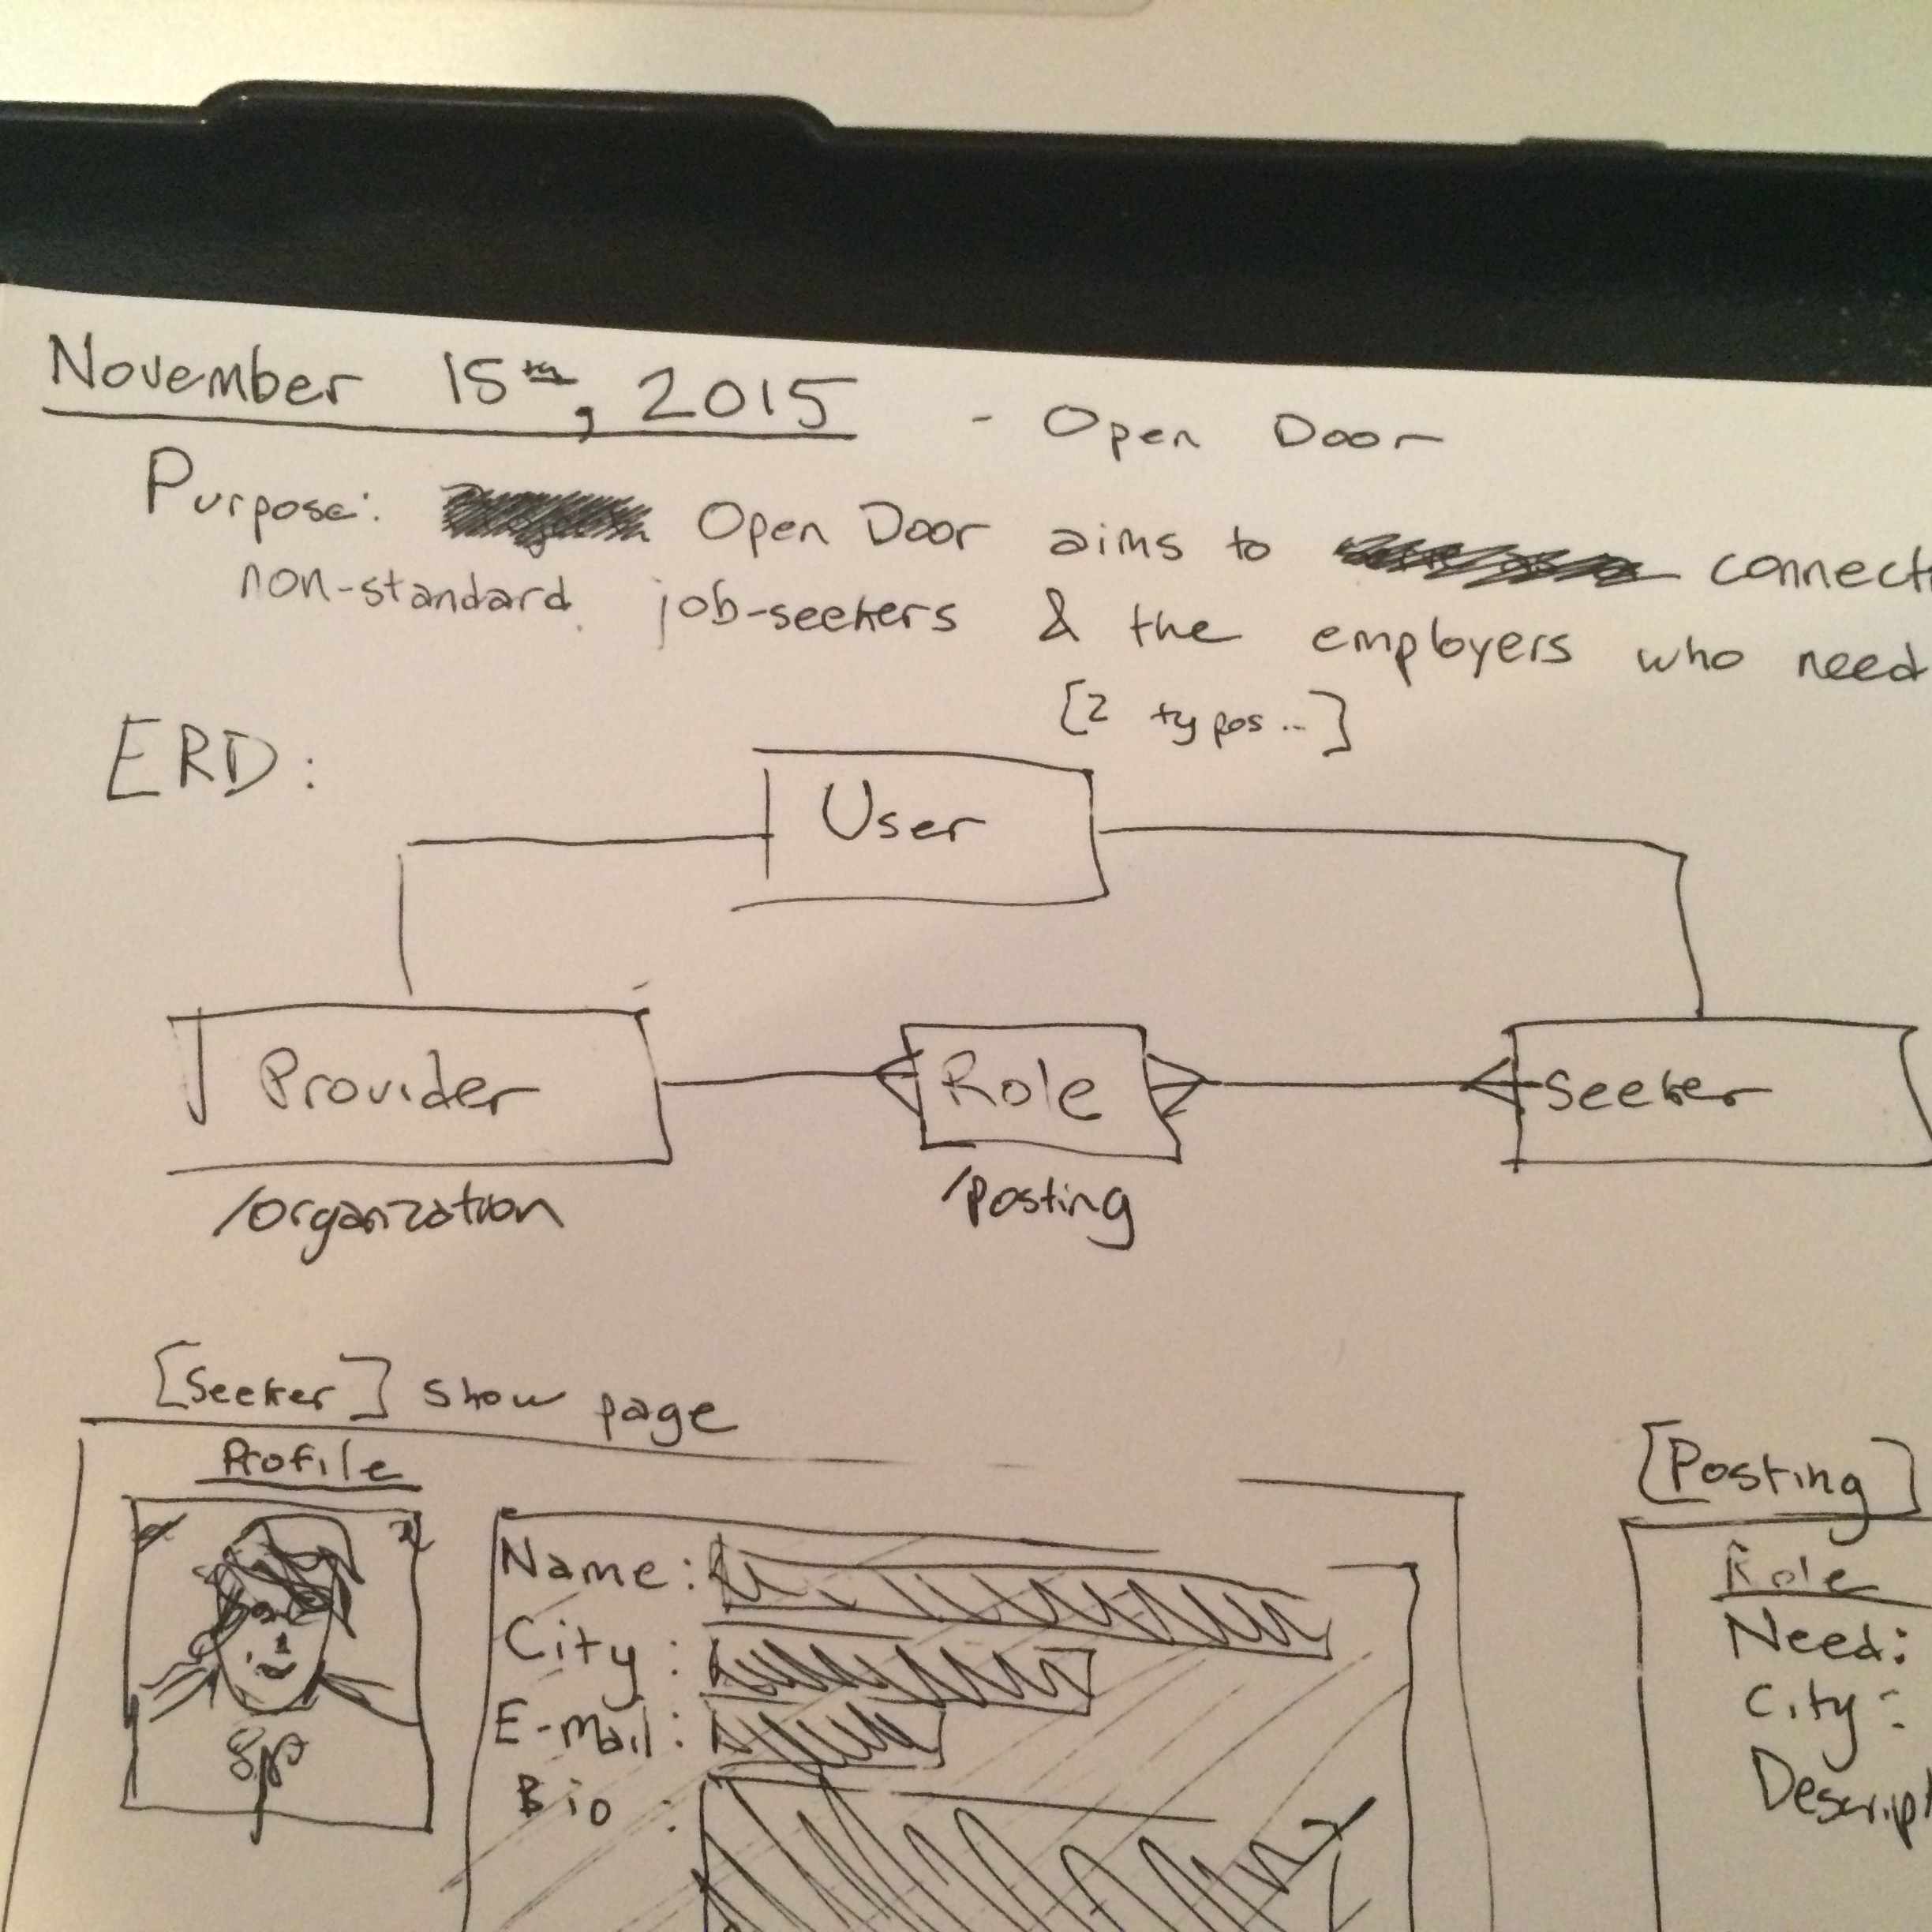 November 15th, 2015 - Open Door
Purpose: Open Door aims to connect
non-standard job-seekers & the employers who need
[2 typos...]
ERD:
User
Provider
Role
Seeker
/organzation
/posting
[Seeker] show page
Profile
Name:
City:
E-mail:
Bio:
[Posting]
Role
Need:
City:
Descript